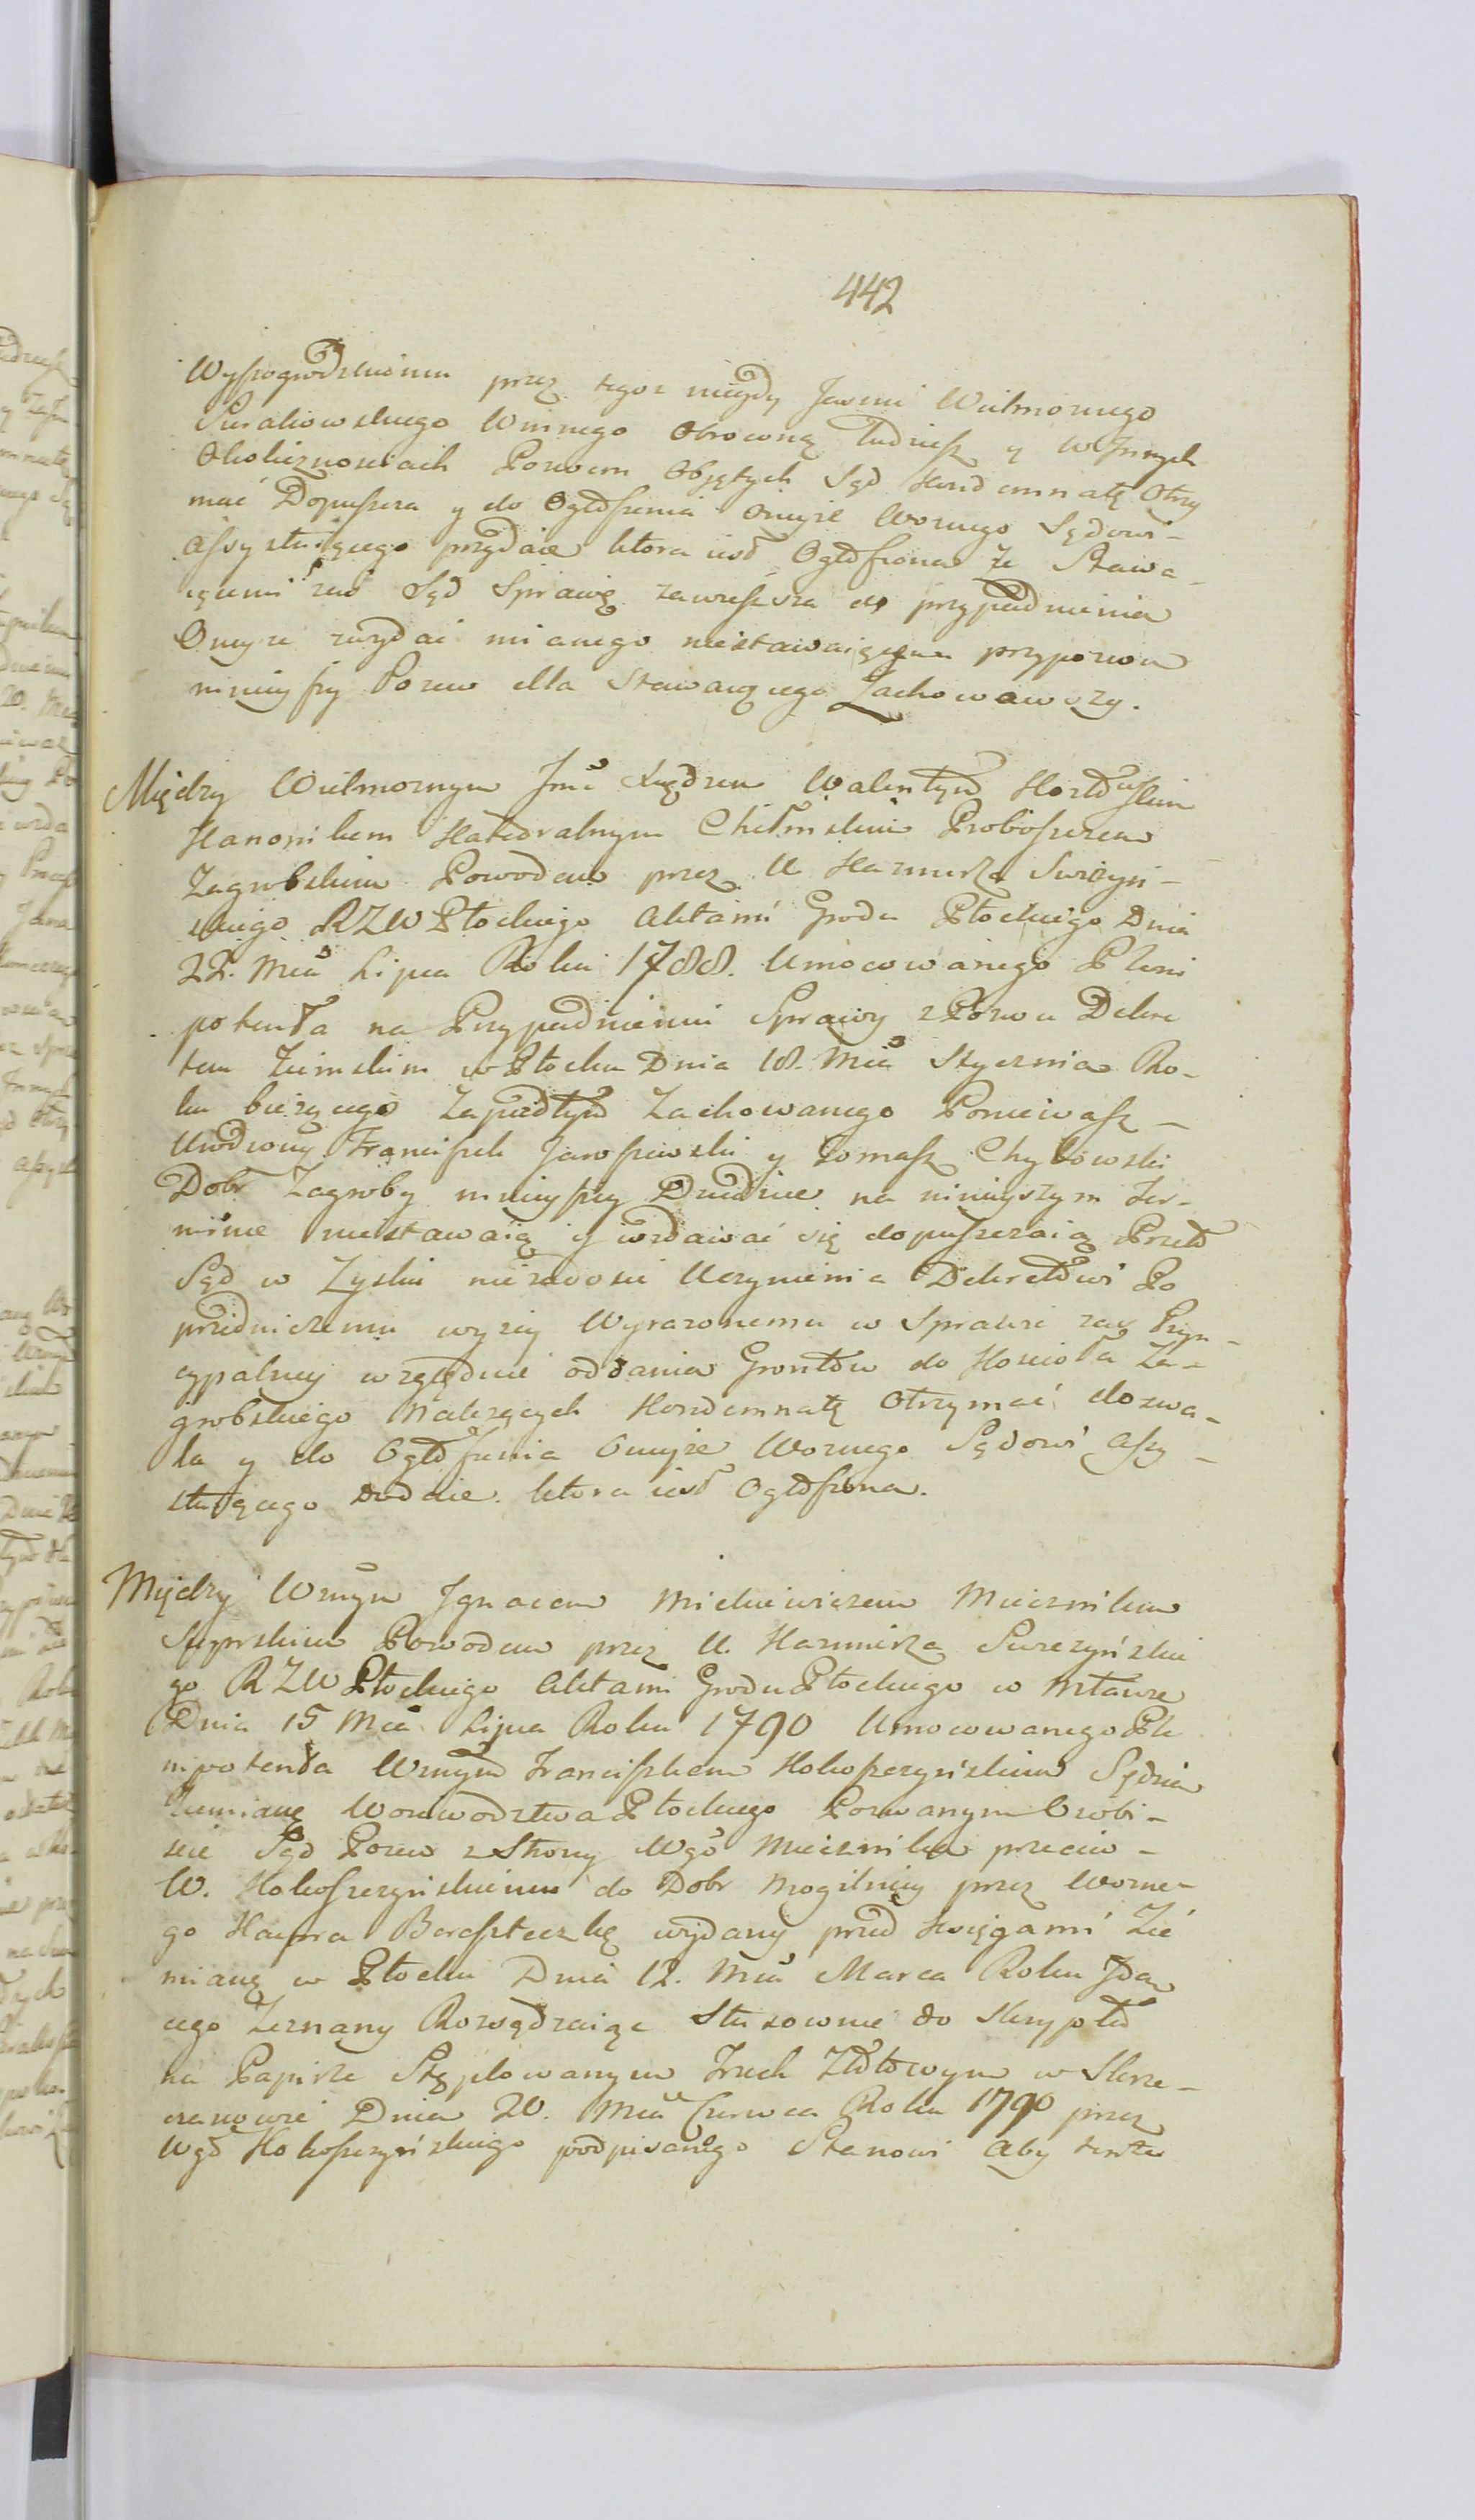 442
Wyspogrodzkiemu przez tegoz niegdy Jasnie Wielmoznego
Sierakowskiego Winnego Obrocenią tudziesz y w Innych
Okolicznosciach Pozwem Objętych Sąd Kondemnatę Otrzy
mać Dopuszcza y do Ogłoszenia Oneyze Woznego Sądowi-
assystuiącego przydaie ktora iest Ogłoszona Ze Stawa-
iącemi zaś Sąd Sprawię zawiesza do przypadnienia
Oneyze niestawaiącym przypozwu
ninieyszy Pozew dla Stawaiącego Zachowawszy.
Między Wielmoznym Jmć Xiędzem Walentym
Kanonikem Katedralnym Chełmskim Proboszczem
Zagrobskim Powodem przez U Kazmierza Swiezyń-
skiego RZW Płockiego Aktami Grodu Płockiego Dnia
22. Mca Lipca Roku 1788. Umocowanego Pleni
potenta na Przypadnieniu Sprawy z Pozwu Dekre
tem Ziemskim w Płocku Dnia 18. Mca Stycznia Ro-
ku bieżącego Zapadłym Zachowanego Poniewasz-
Urodzony Franciszek Jaroszewski y Tomasz Chybowski
Dobr Zagroby mnieyszey Dziedzice na ninieyszym Ter-
minie niestawaią y wzdawać się dopuszczaią Przeto
Sąd w Zysku niezadosić Uczynienia Dekretowi Po
przedniczemu wyzey Wyrazonemu w Sprawie zaś Pryn-
cypalney względnie oddania Grontów do Kościoła Za-
grobskiego Nalezących Kondemnatę Otrzymać dozwa-
la y do Ogłoszenia Oneyze Woznego Sądowi assy-
stuiącego Dodaie. ktora iest Ogłoszona.
Między Wmym Ignacem Mickiewiczem Miecznikem
Powodem przez U. Kazmierza Swiezyńskie
go RZW Płockiego Aktami Grodu Płockiego w Mławie
Dnia 15 Mca Lipca Roku 1790 Umocowanego Ple
nipotenta Wmym Franciszkem Kokoszczyńskim Sędzią
Ziemianę Woiewodztwa Płockiego Pozwanym Osobi-
scie Sąd Pozew z Strony Wgo Miecznika przeciw-
W. Kokoszczyńskiemu do Dobr Mogilnicy przez Wozne-
go Kacpra Beresteczkę wydany przed Księgami Zie
miane w Płocku Dnia 12. Mca Marca Roku Ida
cego Zeznany Rozsądzaiąc Stosownie do Skryptu
na Papirze Stęplowanym Trzech Złłotowym w Skrze-
Dnia 20. Mca Czerwca Roku 1790 przez
Wgo Kokoszczyńskiego podpisanego Stanowi Aby tenze